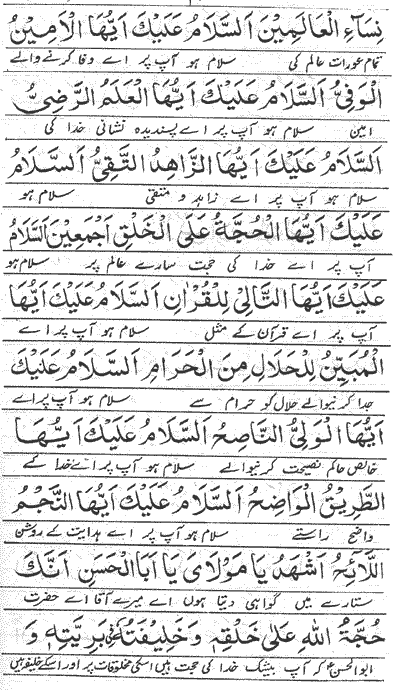 نِسَآءِ الْعَالَمِيْنَ اَلسَّلَامُ عَلَيْكَ اَيُّهَا الْاَمِيْنُ
تمام عورات عالم کی سلام ہو آپ پر اے وفا کرنے والے
الْوَفِيُّ اَلسَّلَامُ عَلَيْكَ اَيُّهَا الْعَلَمُ الرَّضِيُّ
امین سلام ہو آپ پر اے پسندیدہ نشانی خدا کی
اَلسَّلَامُ عَلَيْكَ اَيُّهَا الزَّاهِدُ التَّقِيُّ اَلسَّلَامُ
سلام ہو آپ پر اے زاہد و متقی سلام ہو
عَلَيْكَ اَيُّهَا الْحُجَّةُ عَلَى الْخَلْقِ اَجْمَعِيْنَ اَلسَّلَامُ
آپ پر اے خدا کی حجت سارے عالم پر سلام ہو
عَلَيْكَ اَيُّهَا التَّالِيْ لِلْقُرْاٰنِ اَلسَّلَامُ عَلَيْكَ اَيُّهَا
آپ پر اے قرآن کے مثل سلام ہو آپ پر اے
الْمُبَيِّنُ لِلْحَلَالِ مِنَ الْحَرَامِ اَلسَّلَامُ عَلَيْكَ
جدا کرنیوالے حلال کو حرام سے سلام ہو آپ پر اے
اَيُّهَا الْوَلِيُّ النَّاصِحُ اَلسَّلَامُ عَلَيْكَ اَيُّهَا
خالص حاکم نصیحت کرنیوالے سلام ہو آپ پر اے خدا کے
الطَّرِيْقُ الْوَاضِحُ اَلسَّلَامُ عَلَيْكَ اَيُّهَا النَّجْمُ
واضح راستے سلام ہو آپ پر اے ہدایت کے روشن
اللَّائِحُ اَشْهَدُ يَا مَوْلَايَ يَا اَبَا الْحَسَنِ اَنَّكَ
ستارے میں گواہی دیتا ہوں اے میرے آقا اے حضرت
حُجَّةُ اللهِ عَلٰى خَلْقِهٖ وَخَلِيْفَتُهٗ فِيْ بَرِيَّتِهٖ وَ
ابو الحسنؑ کہ آپ بیشک خدا کی حجت ہیں اسکی مخلوقات پر اور اسکے خلیفہ ہیں